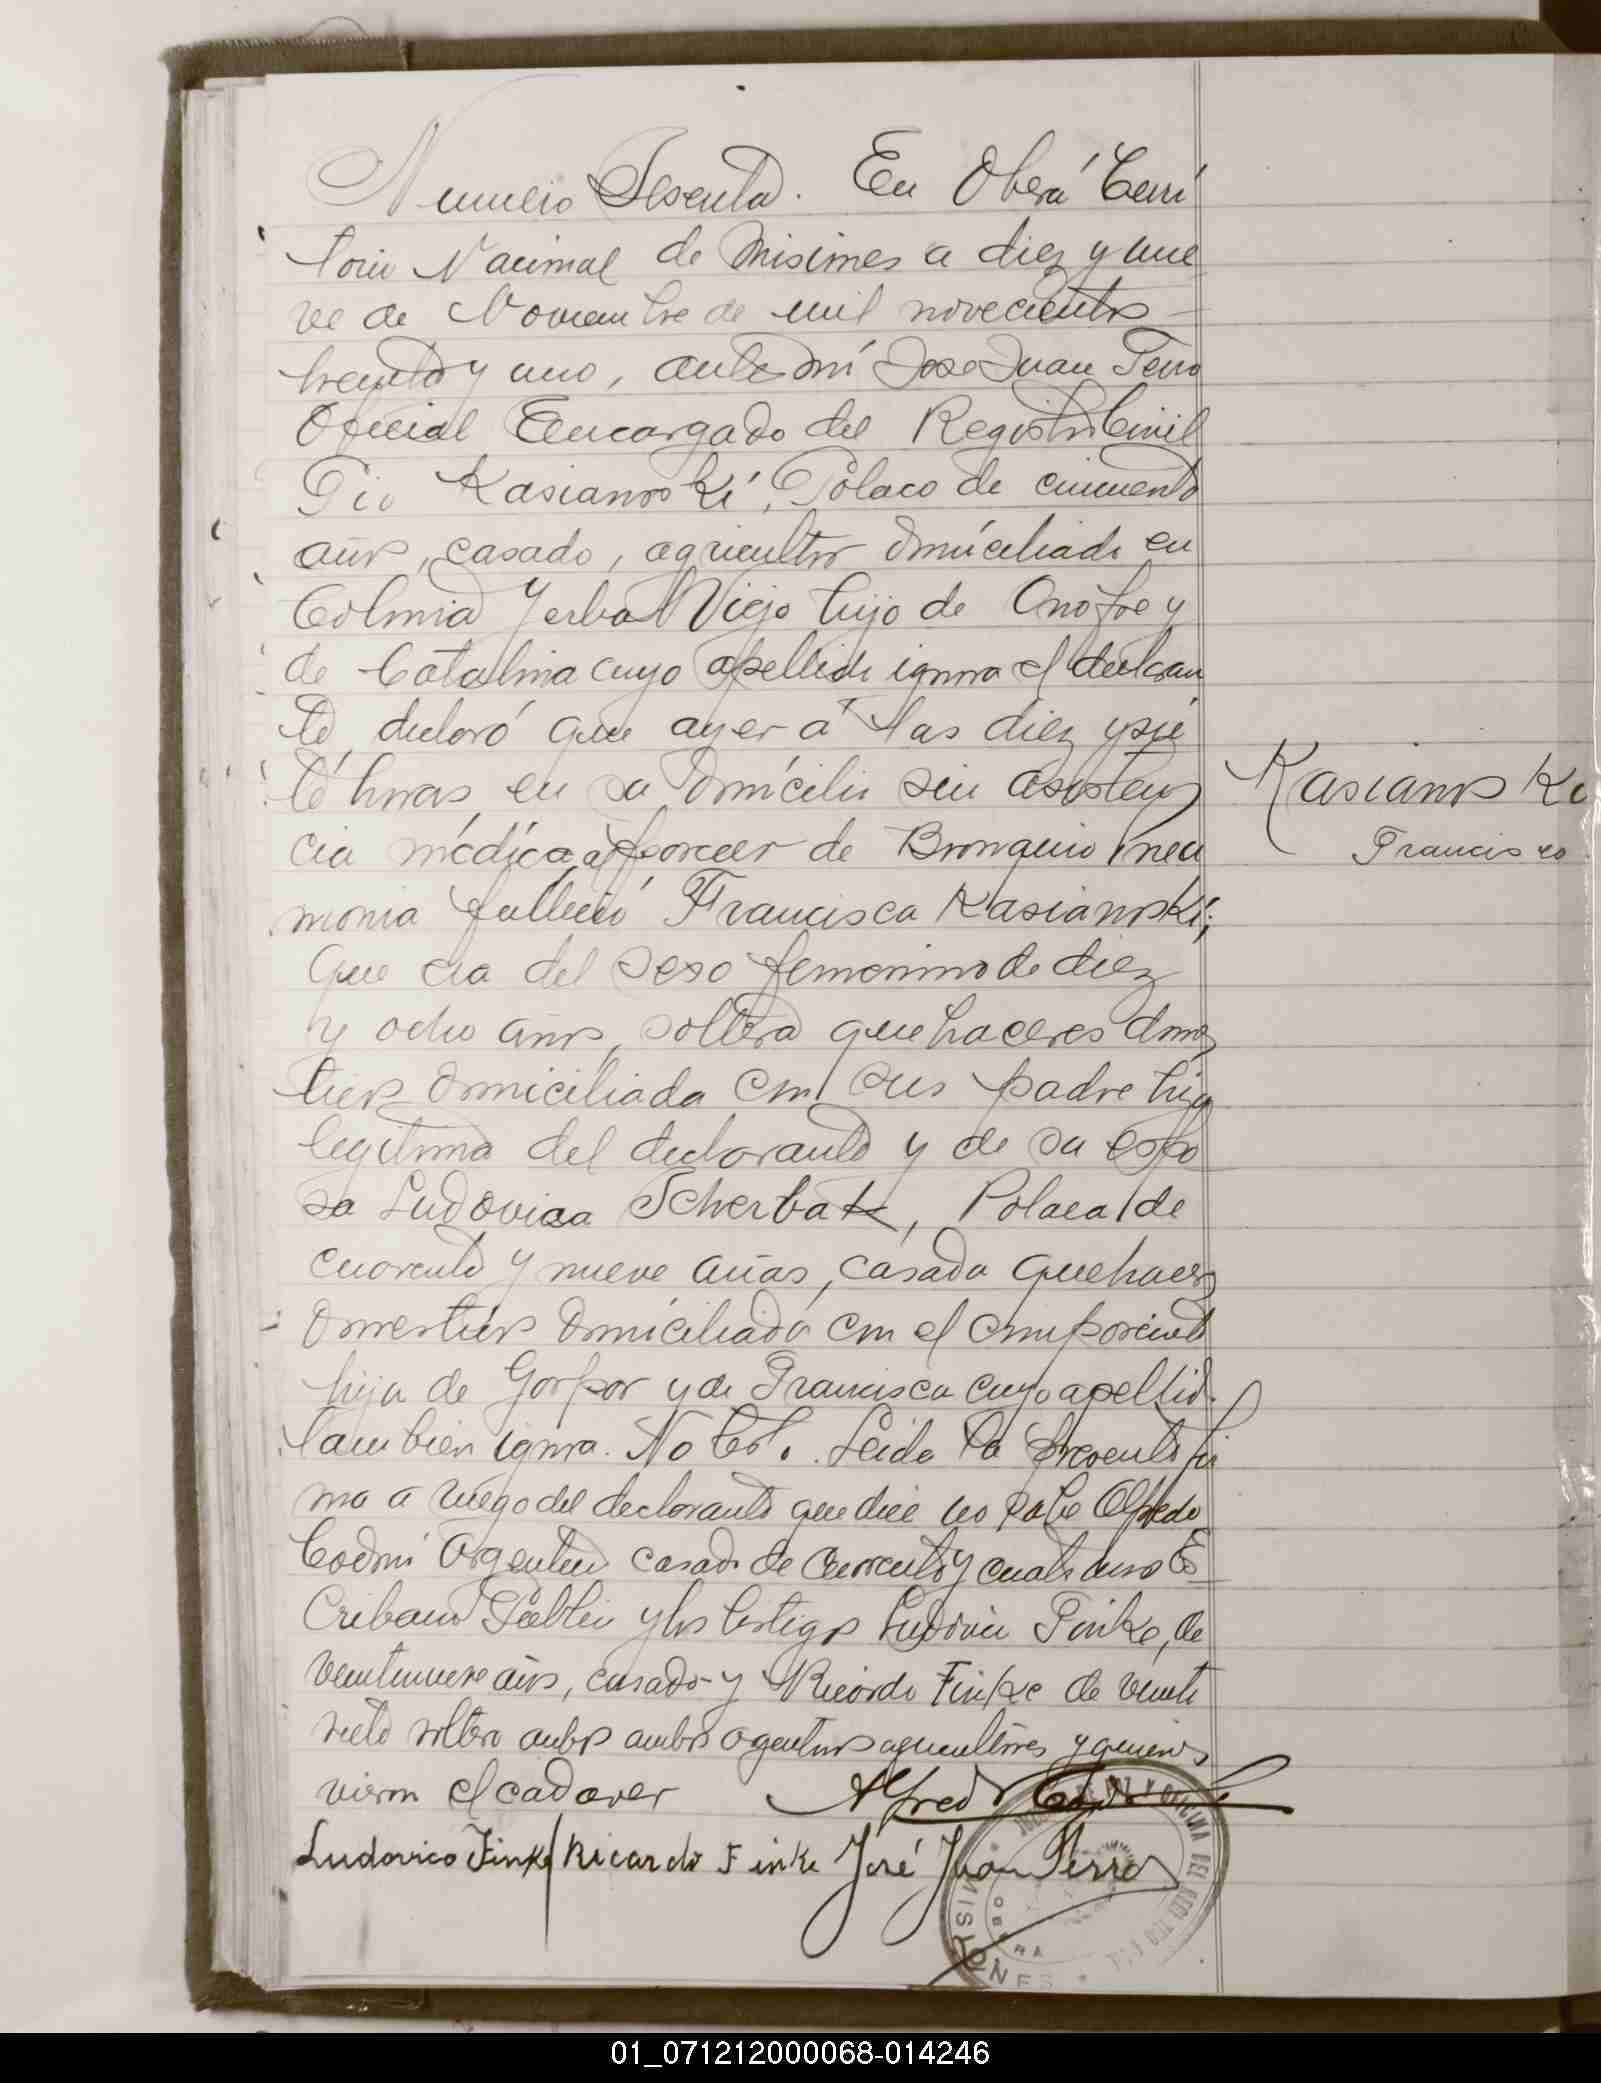 Numero Sesenta. En Oberá Terri
torio Nacional de Misiones a diez y nue
ve de Noviembre de mil novecientos
treinta y uno, ante mí Jose Juan Ferro
Oficial Encargado del Registro Civil
Pio Kasianoski, Polaco de cincuenta
años, casado, agricultor domiciliado en
Colonia Yerbal Viejo hijo de Onofre y
de Catalina cuyo apellido ignora el declaran
te, declaró que ayer á las diez y sie
te horas en su domicilio sin asisten
cia médica, a f de Bronquio neu
monia falleció Francisca Kasianoski;
que era del sexo femenino de diez
y ocho años, soltera quehaceres domes
ticos domiciliada con sus padre hija
legitima del declarante y de su espo
sa Ludovica Scherbak, Polaca de
cuarenta y nueve años, casada quehaceres
domesticos domiciliada con el compareciente
hija de Gorpor y de Francisca cuyo apellido
tambien ignora. No Leida la presente fir
ma a ruego del declarante que dice no sabe Alfredo
Argentino casado de cuarenta y cuatro años Es
cribano Publico y los testigos Ludovico Finke, de
veintinueve años, casado y Ricardo Finke de veinti
siete soltero ambos argentinos agricultores y quienes
vieron el cadaver
Alfredo
Ludovico Finke Ricardo Finke José Juan Ferro
Kasianoski
Francisco
MISIONES
OBERA
01_071212000068-014246